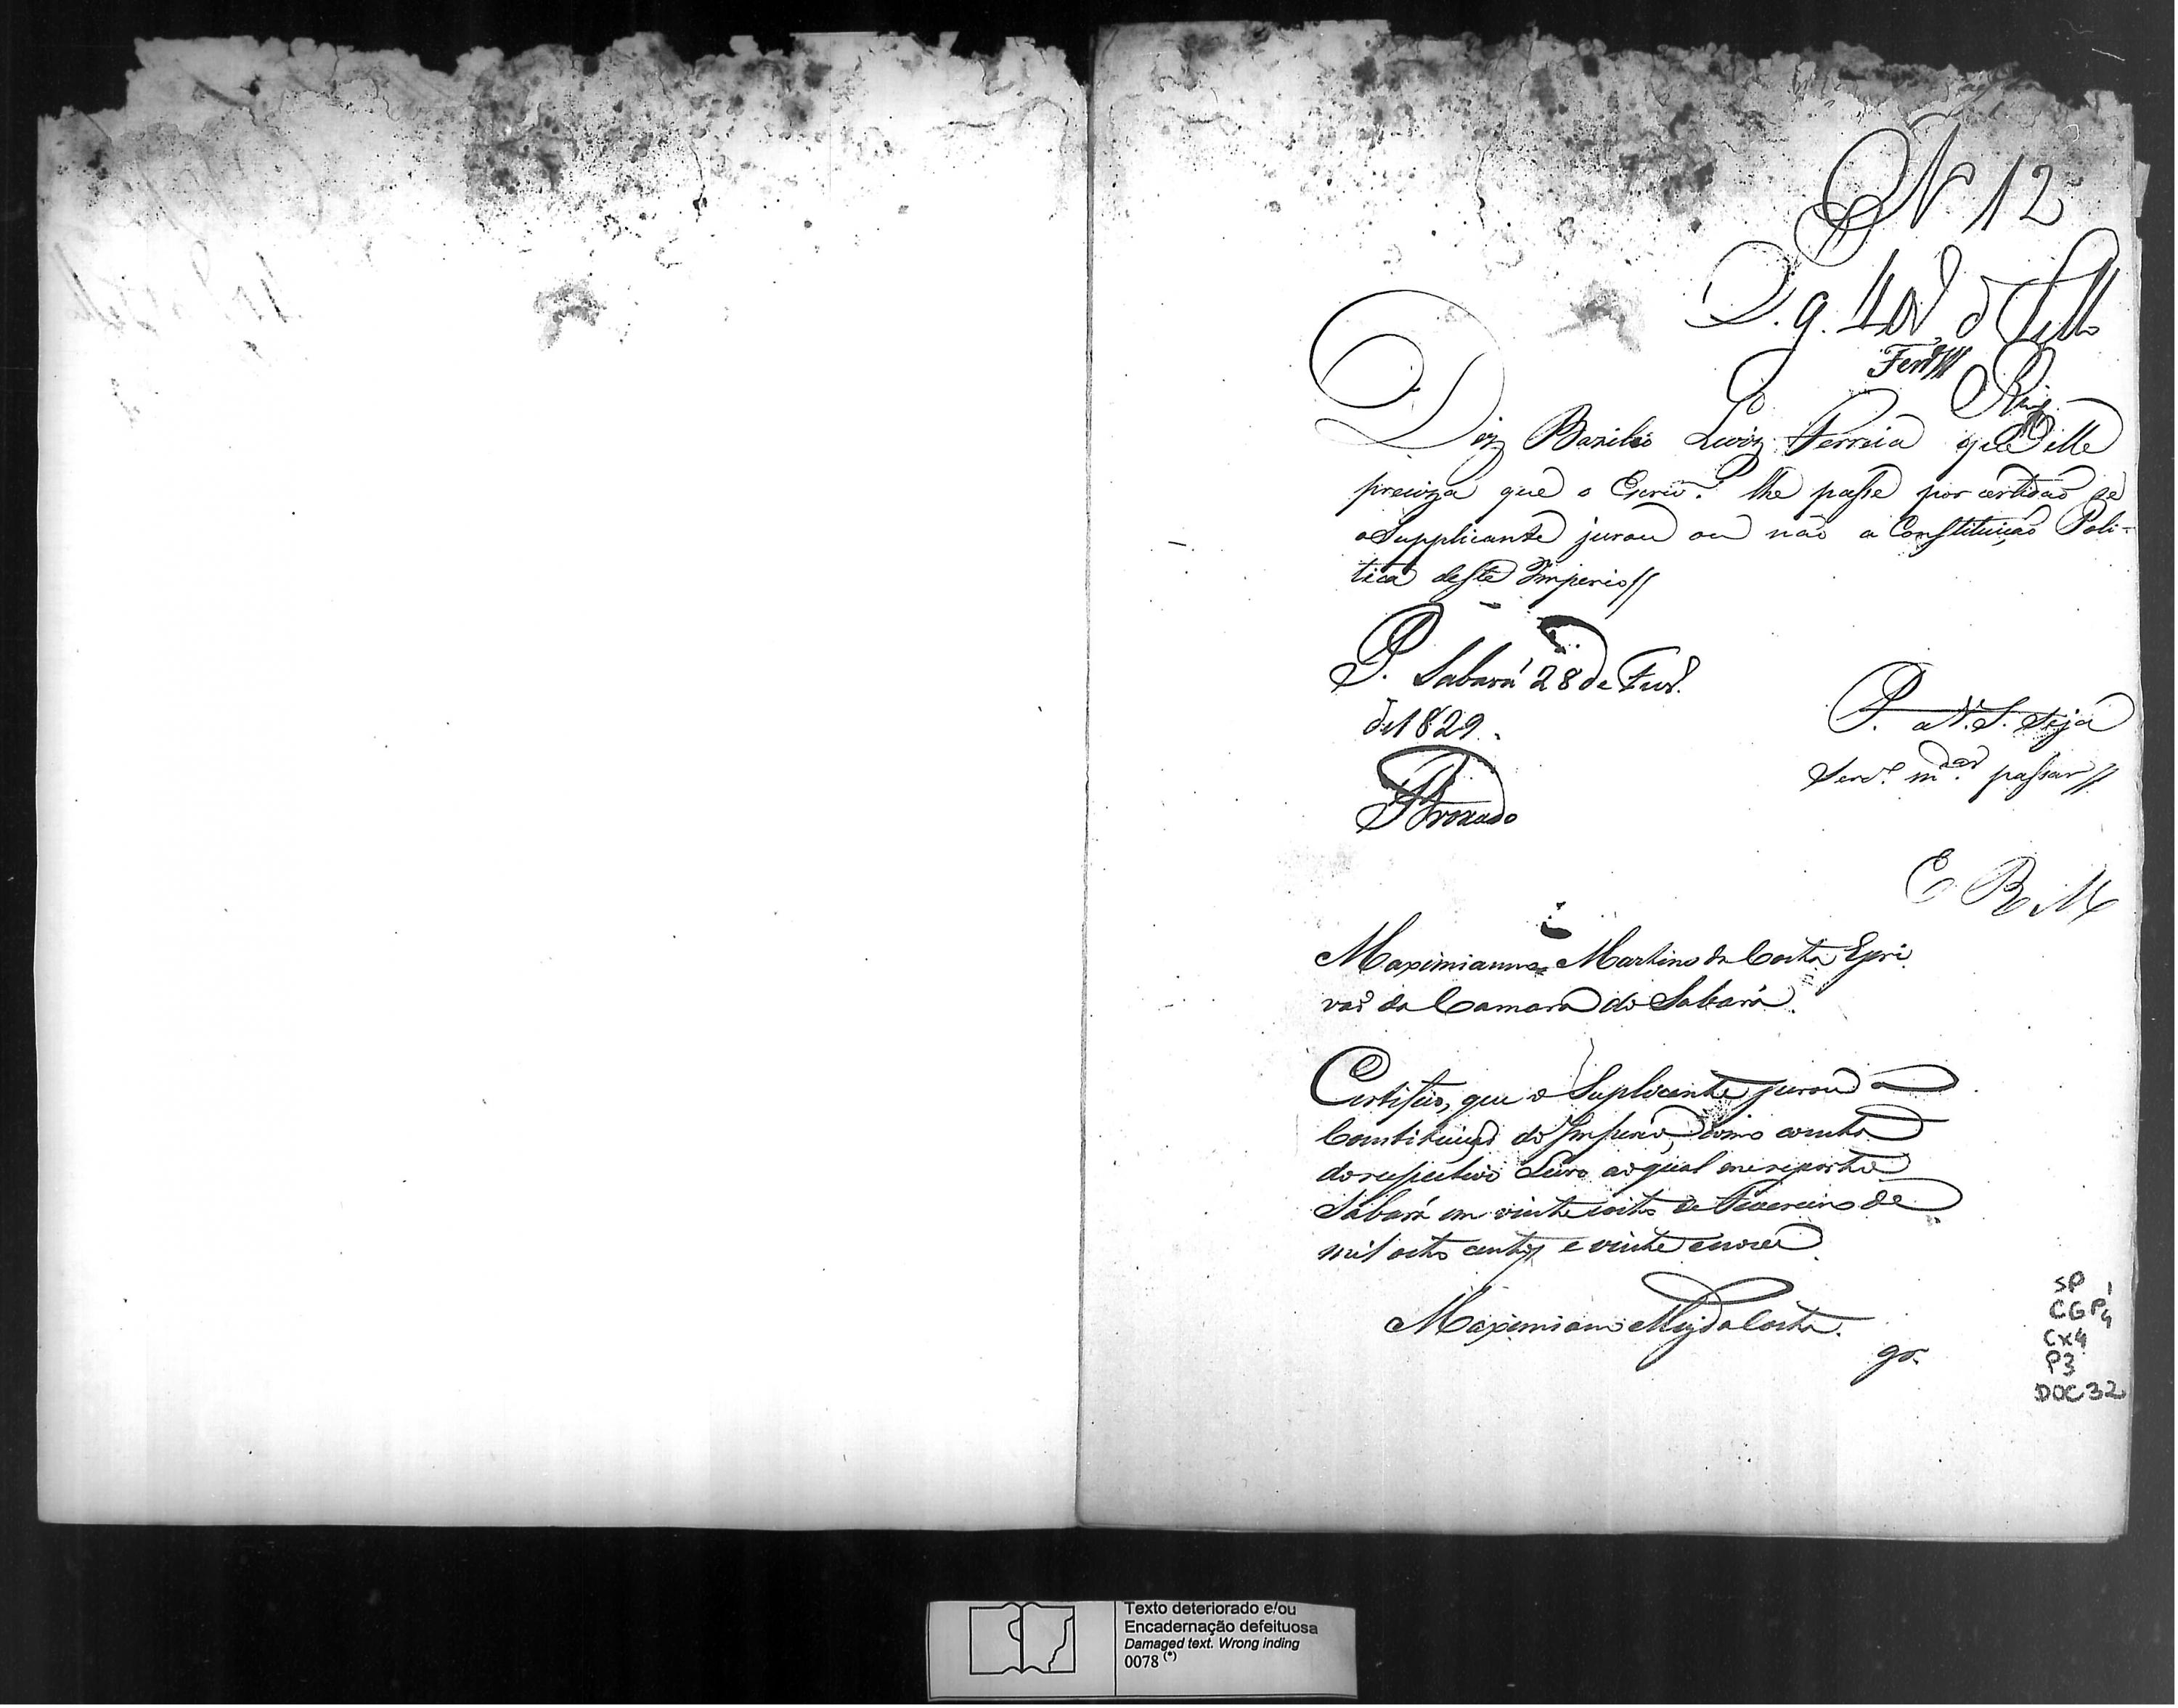 Nº 12
P. g. 40 rs. de Sello
Diz Bazilio Luiz Ferreira que elle
preciza que o Escrivm. lhe passe por certidaõ se
o Supplicante jurou ou naõ a Constituiçaõ Poli-
tica deste Imperio//
P. Sabará 28 de Fevr.
de 1829.
P. a V. S. Seja
Servº. mdar passar//
Broxado
E R Mce
Maximianno Martins da Costa Escri
vaõ da Camara do Sabará.
Certifico, que o Suplicante jurou a
Constituiçaõ do Imperio, como consta
do respectivo Livro ao qual me reporto
Sabará em vinte e oito de Fevereiro de
mil oito centos e vinte e nove
Maximiano Miz da Costa.
gr.
SP
CGP1
Cx4
P3
DOC 32
Texto deteriorado e/ou
Encadernação defeituosa
Damaged text. Wrong inding
0078 (*)